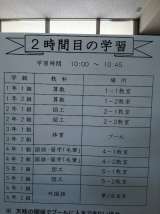 2時間目の学習
学習時間 10:00 ～ 10:45
学級 教科 場所
1年1組 算数 1-1教室
1年2組 算数 1-2教室
2年1組 図工 2-1教室
2年2組 図工 2-2教室
3年1組
3年2組 体育 プール
4年1組 国語・習字(毛筆) 4-1教室
4年2組 国語・習字(毛筆) 4-2教室
5年1組 図工 5-1教室
5年2組 図工 5-2教室
6年1組
6年2組 外国語